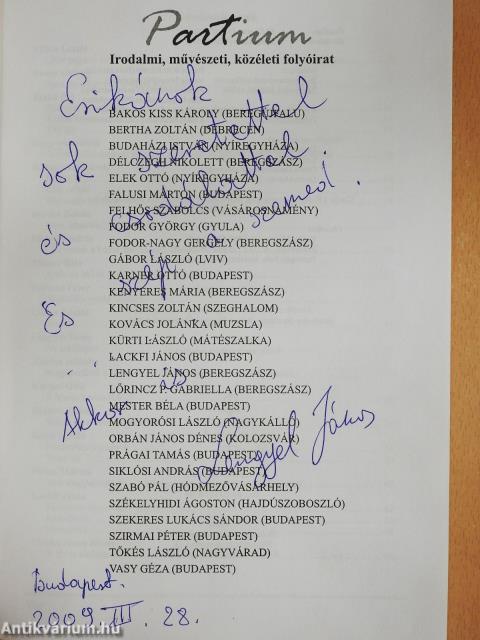 Partium
Irodalmi, művészeti, közéleti folyóirat
Erikának
sok szeretettel
és csodálattal
És szép a szemed!
Akkor is
Lengyel János
Budapest.
2009 III. 28.
BAKOS KISS KÁROLY (BEREGÚJFALU)
BERTHA ZOLTÁN (DEBRECEN)
BUDAHÁZI ISTVÁN (NYÍREGYHÁZA)
DÉLCZEGH NIKOLETT (BEREGSZÁSZ)
ELEK OTTÓ (NYÍREGYHÁZA)
FALUSI MÁRTON (BUDAPEST)
FELHŐS SZABOLCS (VÁSÁROSNAMÉNY)
FODOR GYÖRGY (GYULA)
FODOR-NAGY GERGELY (BEREGSZÁSZ)
GÁBOR LÁSZLÓ (LVIV)
KARNER OTTÓ (BUDAPEST)
KENYERES MÁRIA (BEREGSZÁSZ)
KINCSES ZOLTÁN (SZEGHALOM)
KOVÁCS JOLÁNKA (MUZSLA)
KÜRTI LÁSZLÓ (MÁTÉSZALKA)
LACKFI JÁNOS (BUDAPEST)
LENGYEL JÁNOS (BEREGSZÁSZ)
LŐRINCZ P. GABRIELLA (BEREGSZÁSZ)
MESTER BÉLA (BUDAPEST)
MOGYORÓSI LÁSZLÓ (NAGYKÁLLÓ)
ORBÁN JÁNOS DÉNES (KOLOZSVÁR)
PRÁGAI TAMÁS (BUDAPEST)
SIKLÓSI ANDRÁS (BUDAPEST)
SZABÓ PÁL (HÓDMEZŐVÁSÁRHELY)
SZÉKELYHIDI ÁGOSTON (HAJDÚSZOBOSZLÓ)
SZEKERES LUKÁCS SÁNDOR (BUDAPEST)
SZIRMAI PÉTER (BUDAPEST)
TŐKÉS LÁSZLÓ (NAGYVÁRAD)
VASY GÉZA (BUDAPEST)
Antikvárium.hu